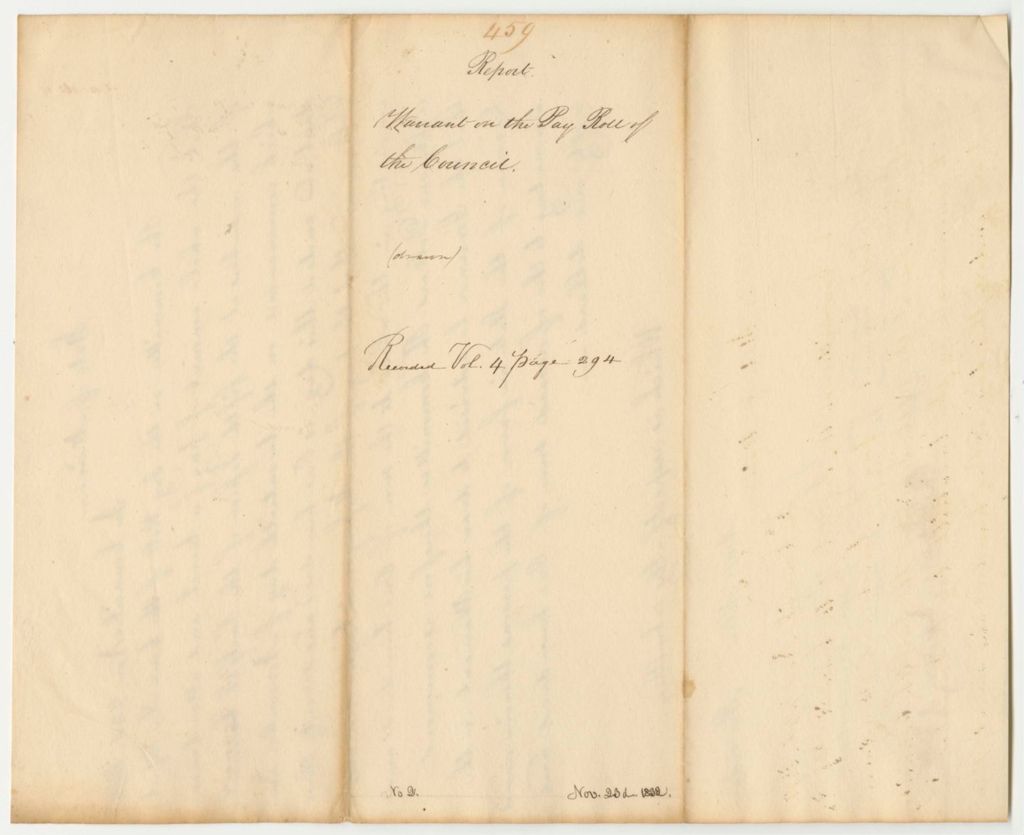 459
Report.
Warrant on the Pay Roll of
the Council.
(drawn)
Recorded Vol. 4 page 294
No 2.
Nov. 23d